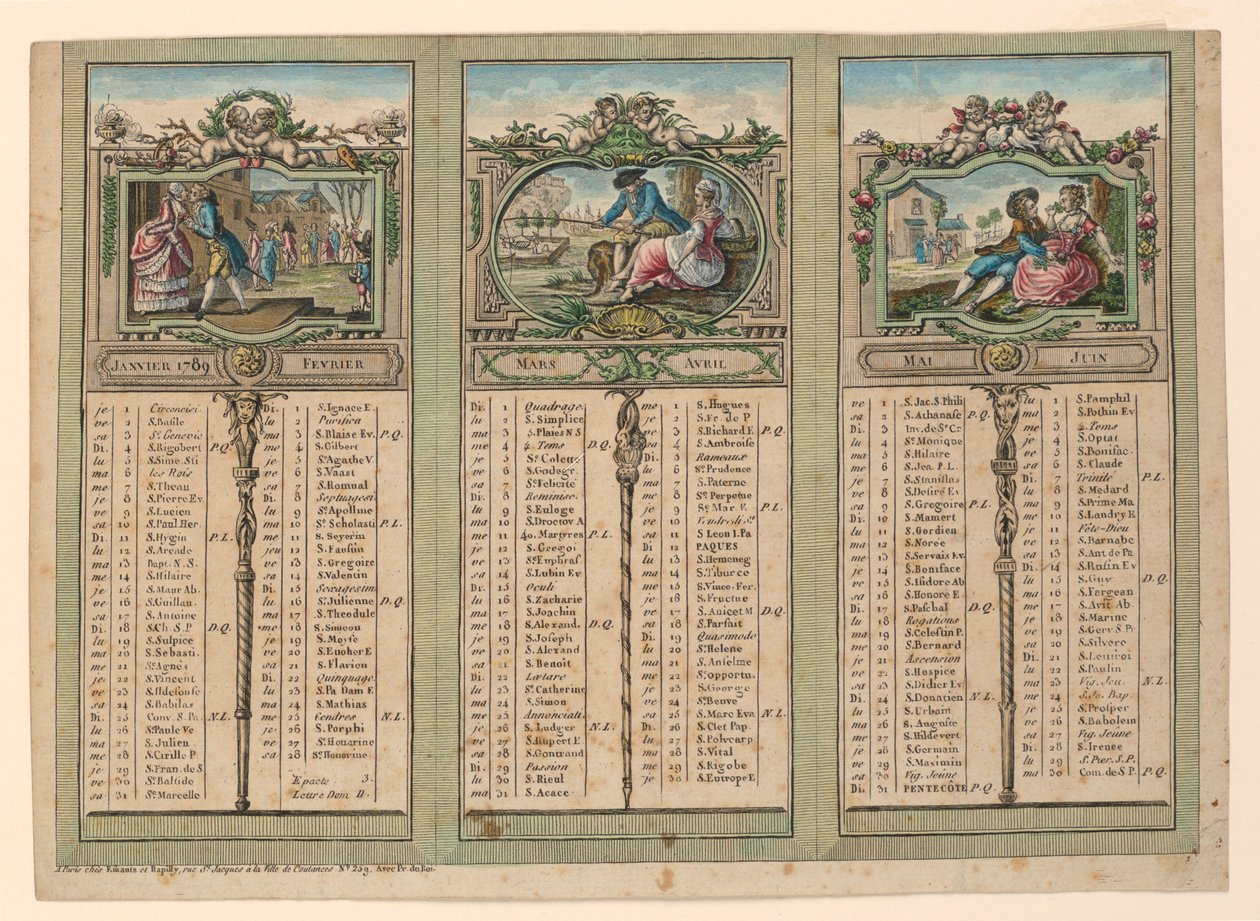 JANVIER 1789
je 1 Circoncisi.
ve 2 S. Basile
sa 3 Ste Genevie. P.Q.
Di. 4 S. Rigobert
lu 5 S. Sime. Sti
ma 6 les Rois
me 7 S. Theau
je 8 S. Pierre Ev.
ve 9 S. Lucien
sa 10 S. Paul. Her.
Di. 11 S. Hygin P.L.
lu 12 S. Arcade
ma 13 Bapt. N. S.
me 14 S. Hilaire
je 15 S. Maur Ab.
ve 16 S. Guillau.
sa 17 S. Antoine
Di. 18 S. Ch. S. P. D.Q.
lu 19 S. Sulpice
ma 20 S. Sebasti.
me 21 Ste Agnès
je 22 S. Vincent
ve 23 S. Ildefonse
sa 24 S. Babilas
Di. 25 Conv. S. Pa. N.L.
lu 26 S. Paule Ve
ma 27 S. Julien.
me 28 S. Cirille P.
je 29 S. Fran. de S.
ve 30 Ste Batilde
sa 31 Ste Marcelle
FEVRIER
Di. 1 S. Ignace E.
lu 2 Purifica
ma 3 S. Blaise Ev. P.Q.
me 4 S. Gilbert
je 5 Ste Agathe V.
ve 6 S. Vaast
sa 7 S. Romual
Di. 8 Septuagesi
lu 9 Ste Apolline
ma 10 Ste Scholasti P.L.
me 11 S. Severin
jeu 12 S. Faustin
ve 13 S. Gregoire
sa 14 S. Valentin
Di. 15 Sexagesim
lu 16 Ste Julienne D.Q.
ma 17 S. Theodule
me 18 S. Simeon
je 19 S. Moyse
ve 20 S. Eucher E
sa 21 S. Flavien
Di. 22 Quinquage.
lu 23 S. Pa Dam E
ma 24 S. Mathias
me 25 Cendres N.L.
je 26 S. Porphi
ve 27 Ste Honorine
sa 28 Ste Honorine
Epacte 3.
Lettre Dom D.
MARS
Di. 1 Quadrage.
lu 2 S. Simplice
ma 3 5. Plaies N S
me 4 4. Tems D.Q.
je 5 Ste Colette
ve 6 S. Godegr.
sa 7 Ste Felicité
Di. 8 Reminisc.
lu 9 S. Euloge
ma 10 S. Droctov. A
me 11 40. Martyres P.L.
je 12 S. Gregoi
ve 13 Ste Euphras.
sa 14 S. Lubin Ev
Di. 15 Oculi
lu 16 S. Zacharie
ma 17 S. Joachin
me 18 S. Alexand. D.Q.
je 19 S. Joseph
ve 20 S. Alexand
sa 21 S. Benoit
Di. 22 Lætare
lu 23 Ste Catherine
ma 24 S. Simon
me 25 Annonciati.
je 26 S. Ludger N.L.
ve 27 S. Rupert E.
sa 28 S. Gontrand
Di. 29 Passion
lu 30 S. Rieul
ma 31 S. Acace.
AVRIL
me 1 S. Hugues
je 2 S. Fr. de P
ve 3 S. Richard E P.Q.
sa 4 S. Ambroise
Di. 5 Rameaux
lu 6 Ste Prudence
ma 7 S. Paterne
me 8 Ste Perpetue
je 9 Ste Mar. E P.L.
ve 10 Vendredi. St
sa 11 S Leon I. Pa
Di 12 PAQUES
lu 13 S. Hemeneg
ma 14 S. Tiburce
me 15 S. Vince. Fer.
je 16 S. Fructue
ve 17 S. Anicet M D.Q.
sa 18 S. Parfait
Di. 19 Quasimodo
lu 20 Ste Helene
ma 21 S. Anselme
me 22 Ste opportu.
je 23 S. George
ve 24 Ste Beuve
sa 25 S. Marc Eva N.L.
Di. 26 S. Clet Pap.
lu 27 S. Polycarp
ma 28 S. Vital
me 29 S. Rigobe
je 30 S. Eutrope E
MAI
ve 1 S. Jac. S. Phili
sa 2 S. Athanase P.Q.
Di 3 Inv. de Ste Cr
lu 4 Ste Monique
ma 5 S. Hilaire
me 6 S. Jea. P. L.
je 7 S. Stanislas
ve 8 S. Desiré Ev
sa 9 S. Gregoire P.L.
Di. 10 S. Mamert
lu 11 S. Gordien
ma 12 S. Norée
me 13 S. Servais Ev.
je 14 S. Boniface
ve 15 S. Isidore Ab
sa 16 S. Honore E.
Di. 17 S. Paschal D.Q.
lu 18 Rogations
ma 19 S. Celestin P.
me 20 S. Bernard
je 21 Ascension
ve 22 S. Hospice
sa 23 S. Didier Ev
Di. 24 S. Donatien N.L.
lu 25 S. Urbain
ma 26 S. Auguste
me 27 S. Hildevert
je 28 S. Germain
ve 29 S. Maximin
sa 30 Vig. Jeune
Di. 31 PENTECÔTE P.Q.
JUIN
lu 1 S. Pamphil
ma 2 S. Pothin Ev
me 3 4. Tems
je 4 S. Optat
ve 5 S. Bonifac.
sa 6 S. Claude
Di. 7 Trinité P.L.
lu 8 S. Medard
ma 9 S. Prime Ma
me 10 S. Landry E
je 11 Fête-Dieu
ve 12 S. Barnabe
sa 13 S. Ant. de Pa
Di. 14 S. Rufin Ev
lu 15 S. Guy D.Q.
ma 16 S. Fergean
me 17 S. Avit Ab.
je 18 S. Marine
ve 19 S. Gerv. S. Pr
sa 20 S. Silvere
Di. 21 S. Leufroi
lu 22 S. Paulin
ma 23 Vig. Jeu. N.L.
me 24 S. Je. Bap.
je 25 S. Prosper
ve 26 S. Babolein
sa 27 Vig. Jeûne
Di. 28 S. Irenée
lu 29 S. Pier. S. P.
ma 30 Com. de S P. P.Q.
A Paris chés Esnauts et Rapilly, rue St Jacques à la Ville de Coutances No 259, Avec Pr. du Roi.